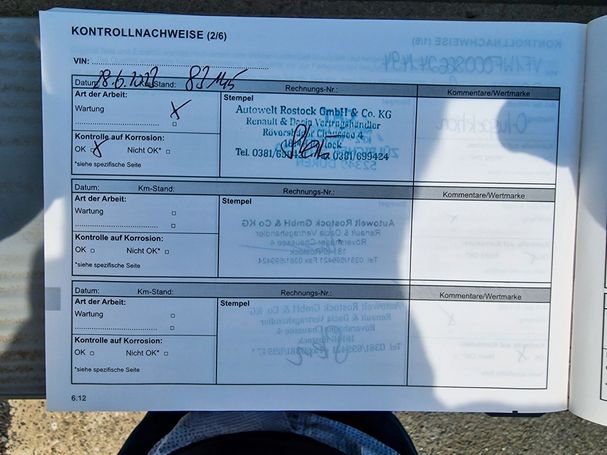 KONTROLLNACHWEISE (2/6)
VIN:
Datum: 28.6.2022 Km-Stand: 83145 Rechnungs-Nr.: Kommentare/Wertmarke
Art der Arbeit: Stempel
Wartung X
Autowelt Rostock GmbH & Co. KG
Renault & Dacia Vertragshändler
Rövershäger Chaussee 4
Kontrolle auf Korrosion:
OK X Nicht OK*
Tel. 0381/ 0381/699424
*siehe spezifische Seite
Datum: Km-Stand: Rechnungs-Nr.: Kommentare/Wertmarke
Art der Arbeit: Stempel
Wartung
Kontrolle auf Korrosion:
OK Nicht OK*
*siehe spezifische Seite
Datum: Km-Stand: Rechnungs-Nr.: Kommentare/Wertmarke
Art der Arbeit: Stempel
Wartung
Kontrolle auf Korrosion:
OK Nicht OK*
*siehe spezifische Seite
6.12